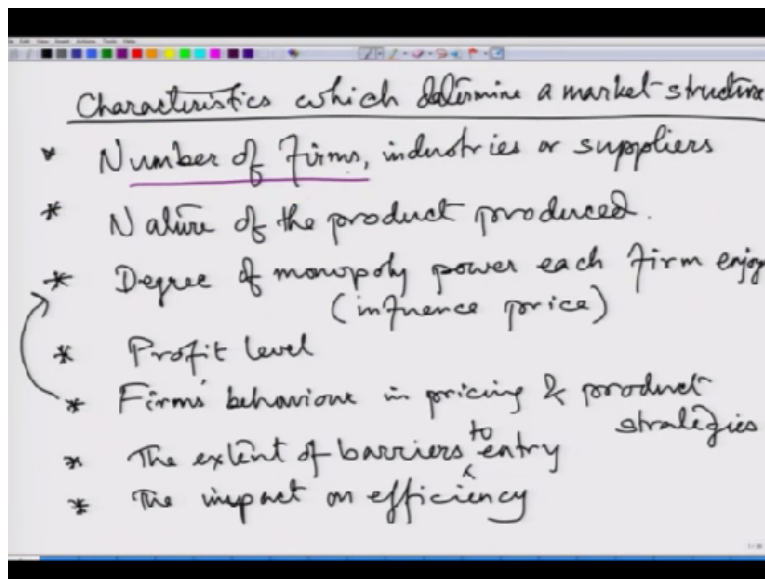 Characteristics which determine a market structure
* Number of Firms, industries or suppliers
* Nature of the product produced.
* Degree of monopoly power each firm enjoy
(influence price)
* Profit level
* Firms' behaviour in pricing & product
strategies
* The extent of barriers to entry
* The impact on efficiency